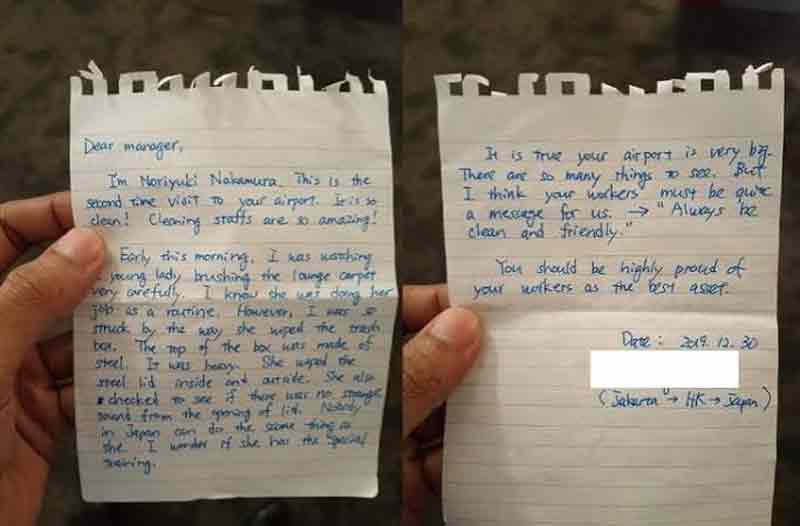 Dear manager,
I'm Noriyuki Nakamura. This is the
second time visit to your airport. It is so
clean! Cleaning staffs are so amazing!
Early this morning, I was watching
a young lady brushing the lounge carpet
very carefully. I know she was doing her
job as a routine. However, I was so
struck by the way she wiped the trash
box. The top of the box was made of
steel. It was heavy. She wiped the
steel lid inside and outside. She also
checked to see if there was no strange
sound from the opning of lid. Nobody
in Japan can do the same thing as
she. I wonder if she has the special
training.
It is true your airport is very big.
There are so many things to see. But
I think your workers must be quite
a message for us. → "Always be
clean and friendly."
You should be highly proud of
your workers as the best asset.
Date: 2019. 12. 30
(Jakarta → HK → Japan)